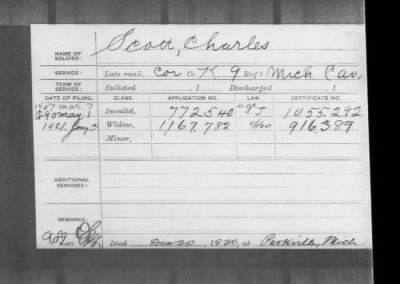 NAME OF SOLDIER: Scott, Charles
SERVICE: Late rank, Cor Co. K, 9 Reg't Mich Cav,
TERM OF SERVICE: Enlisted , 1 Discharged , 1
DATE OF FILING. CLASS. APPLICATION NO. LAW. CERTIFICATE NO.
1907 Mar 7
1890 May 1 Invalid, 772540 J 1055,292
1921. Jany 3 Widow, 1,167,782 916,389
Minor,
ADDITIONAL SERVICES:
REMARKS:
Died Dec 20, 1920, at Parkville, Mich